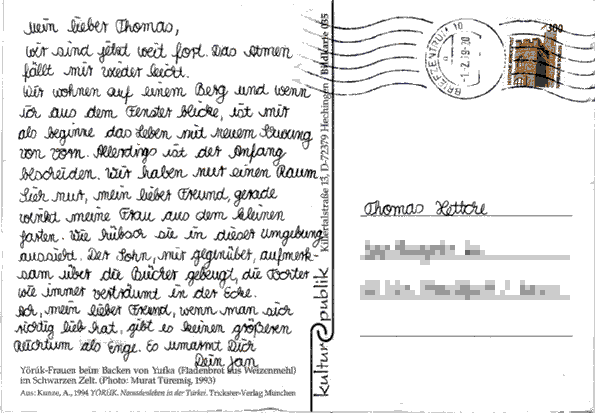 Mein lieber Thomas,
wir sind jetzt weit fort. Das Atmen
fällt mir wieder leicht.
Wir wohnen auf einem Berg und wenn
ich aus dem Fenster blicke, ist mir
als beginne das Leben mit neuem Schwung
von vorn. Allerdings ist der Anfang
bescheiden. Wir haben nur einen Raum.
Sieh nur, mein lieber Freund, gerade
winkt meine Frau aus dem kleinen
Garten. Wie hübsch sie in dieser Umgebung
aussieht. Der Sohn, mir gegenüber, aufmerk-
sam über die Bücher gebeugt, die Tochter
wie immer verträumt in der Ecke.
Ach, mein lieber Freund, wenn man sich
richtig lieb hat, gibt es keinen größeren
Reichtum als Enge. Es umarmt Dich
Dein Jan
Yörük-Frauen beim Backen von Yufka (Fladenbrot aus Weizenmehl)
im Schwarzen Zelt. (Photo: Murat Türemiş, 1993)
Aus: Kunze, A., 1994 YÖRÜK. Nomadenleben in der Türkei. Trickster-Verlag München
kultur@publik
Killertalstraße 13, D-72379 Hechingen Bildkarte 035
BRIEFZENTRUM 10
300
Thomas Hettche